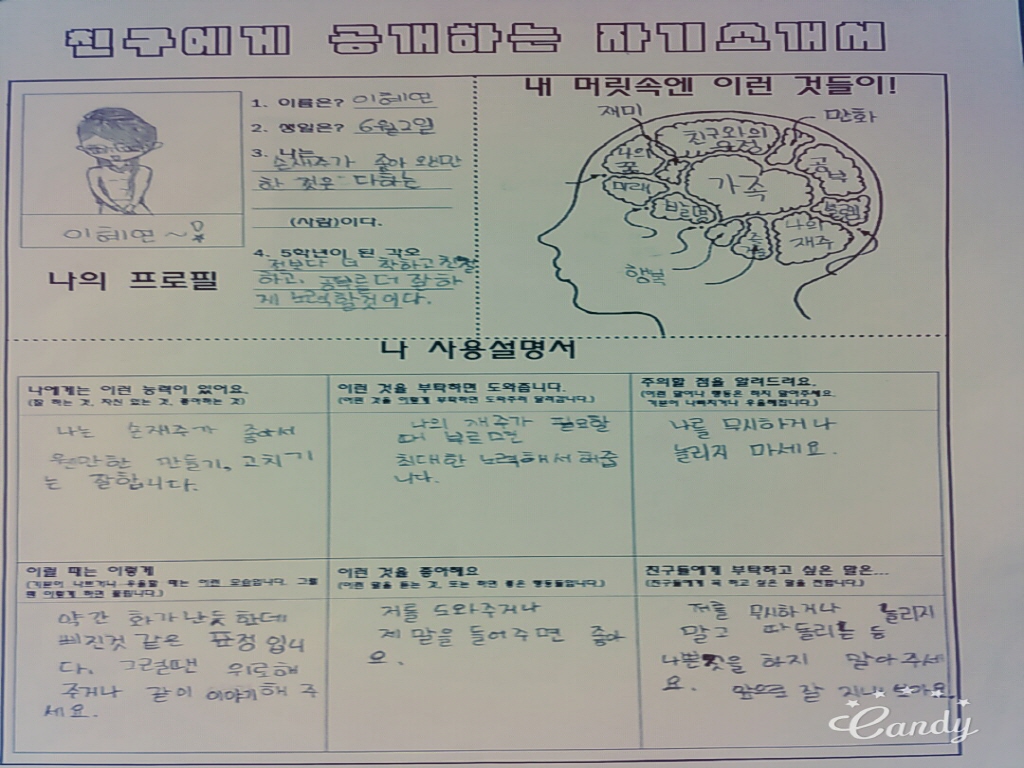 친구에게 공개하는 자기소개서
1. 이름은? 이혜연
2. 생일은? 6월2일
3. 나는
손재주가 좋아 왠만
한 것은 다하는
(사람)이다.
이혜연~!
나의 프로필
4. 5학년이 된 각오
전보다 더 착하고 친절
하고, 공부를 더 잘하
게 노력할것이다.
내 머릿속엔 이런 것들이!
재미
만화
친구와의
우정
나의
꿈
공부
미래
가족
나의
재주
행복
나 사용설명서
나에게는 이런 능력이 있어요.
(잘 하는 것, 자신 있는 것, 좋아하는 것)
나는 손재주가 좋아서
웬만한 만들기, 고치기
는 잘합니다.
이런 것을 부탁하면 도와줍니다.
(이런 것을 이렇게 부탁하면 도와주러 달려갑니다.)
나의 재주가 필요할
때 부르면
최대한 노력해서 해줍
니다.
주의할 점을 알려드려요.
(이런 말이나 행동은 하지 말아주세요.
기분이 나빠지거나 우울해집니다.)
나를 무시하거나
놀리지 마세요.
이럴 때는 이렇게
(기분이 나쁘거나 우울할 때는 이런 모습입니다. 그럴
땐 이렇게 하면 풀립니다.)
약간 화가난듯 한데
삐진것 같은 표정 입니
다. 그럴땐 위로해
주거나 같이 이야기해 주
세요.
이런 것을 좋아해요
(이런 말을 듣는 것, 또는 하면 좋은 행동들입니다.)
저를 도와주거나
제 말을 들어주면 좋아
요.
친구들에게 부탁하고 싶은 말은...
(친구들에게 꼭 하고 싶은 말을 전합니다.)
저를 무시하거나 놀리지
말고 따돌리는 등
나쁜짓을 하지 말아주세
요. 앞으로 잘 지내 보아요.
Candy